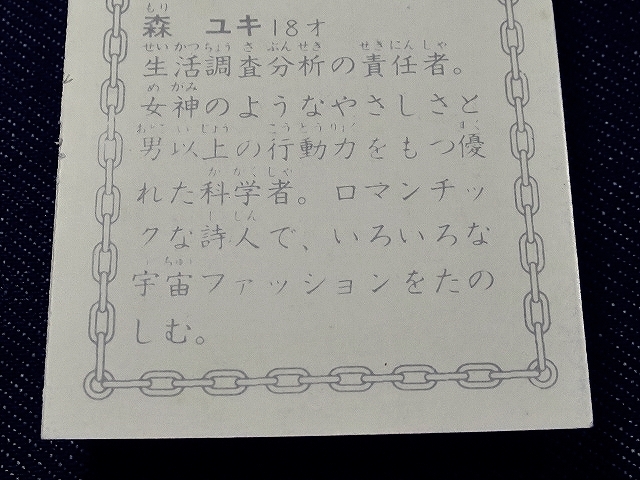 森 ユキ 18才
生活調査分析の責任者。
女神のようなやさしさと
男以上の行動力をもつ優
れた科学者。ロマンチッ
クな詩人で、いろいろな
宇宙ファッションをたの
しむ。